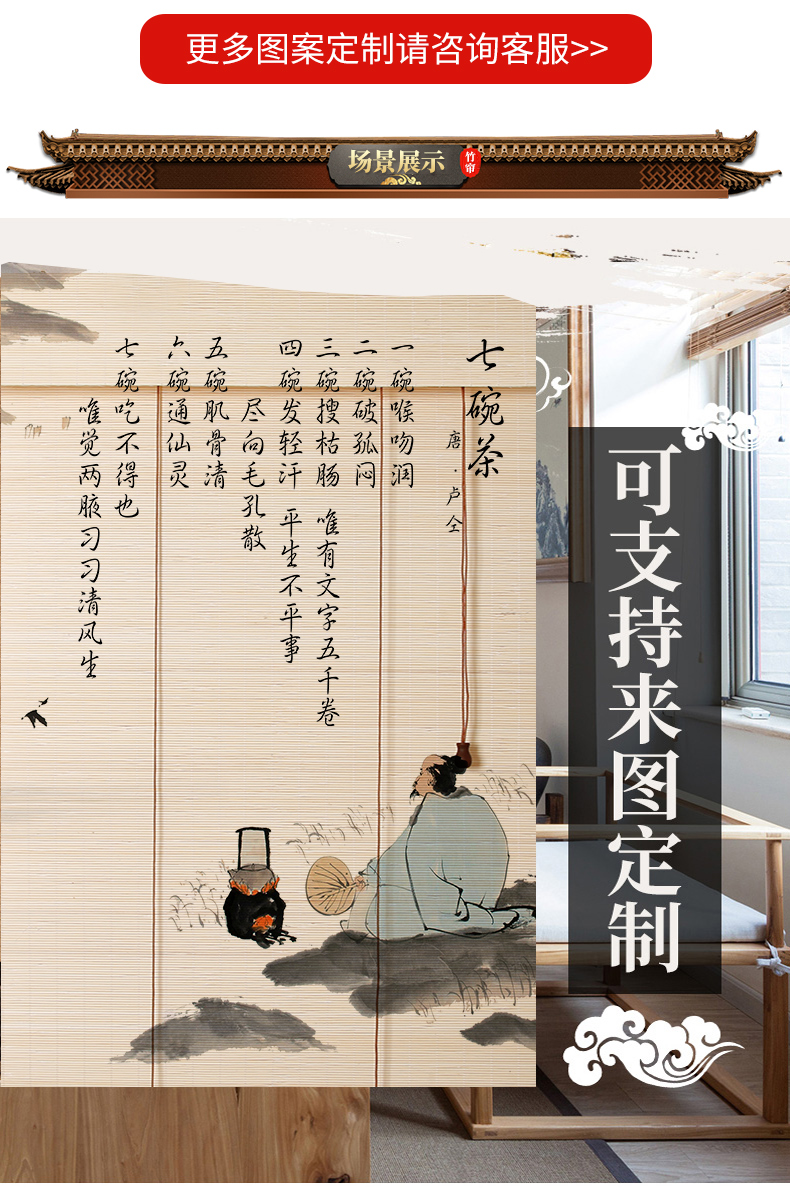 更多图案定制请咨询客服>>
场景展示
竹帘
七碗茶
唐·卢仝
一碗喉吻润
二碗破孤闷
三碗搜枯肠 唯有文字五千卷
四碗发轻汗 平生不平事
尽向毛孔散
五碗肌骨清
六碗通仙灵
七碗吃不得也
唯觉两腋习习清风生
可支持来图定制